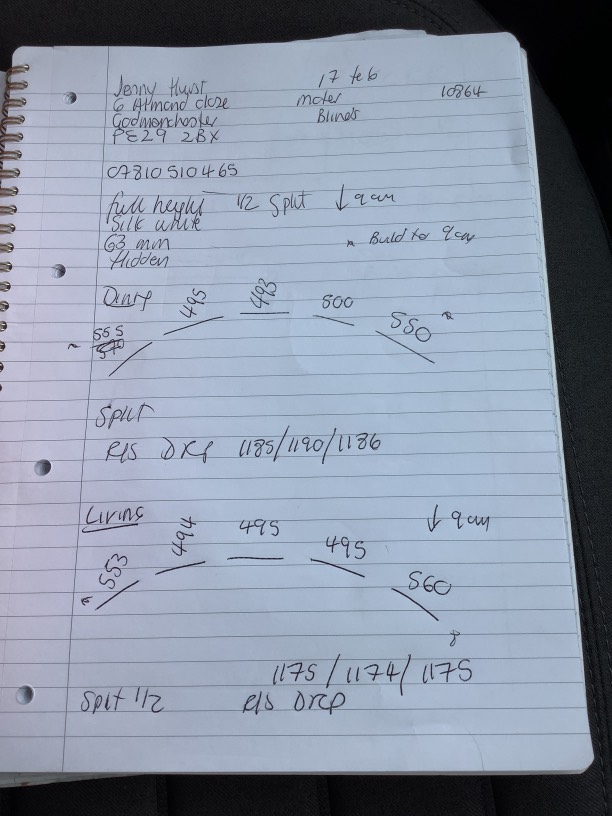 Jenny Hurst 17 feb
6 Almond close moter 10864
Godmanchester Blinds
PE29 2BX
07810510465
full height 1/2 Split ↓ 9cm
Silk white
63 mm * Build to 9cm
Hidden
Dinig 495 493 500
555 550 *
Split
R/S Drp 1185/1190/1186
Living 494 495 495 ↓ 9cm
553 560
1175 / 1174 / 1175
Split 1/2 R/S Drp